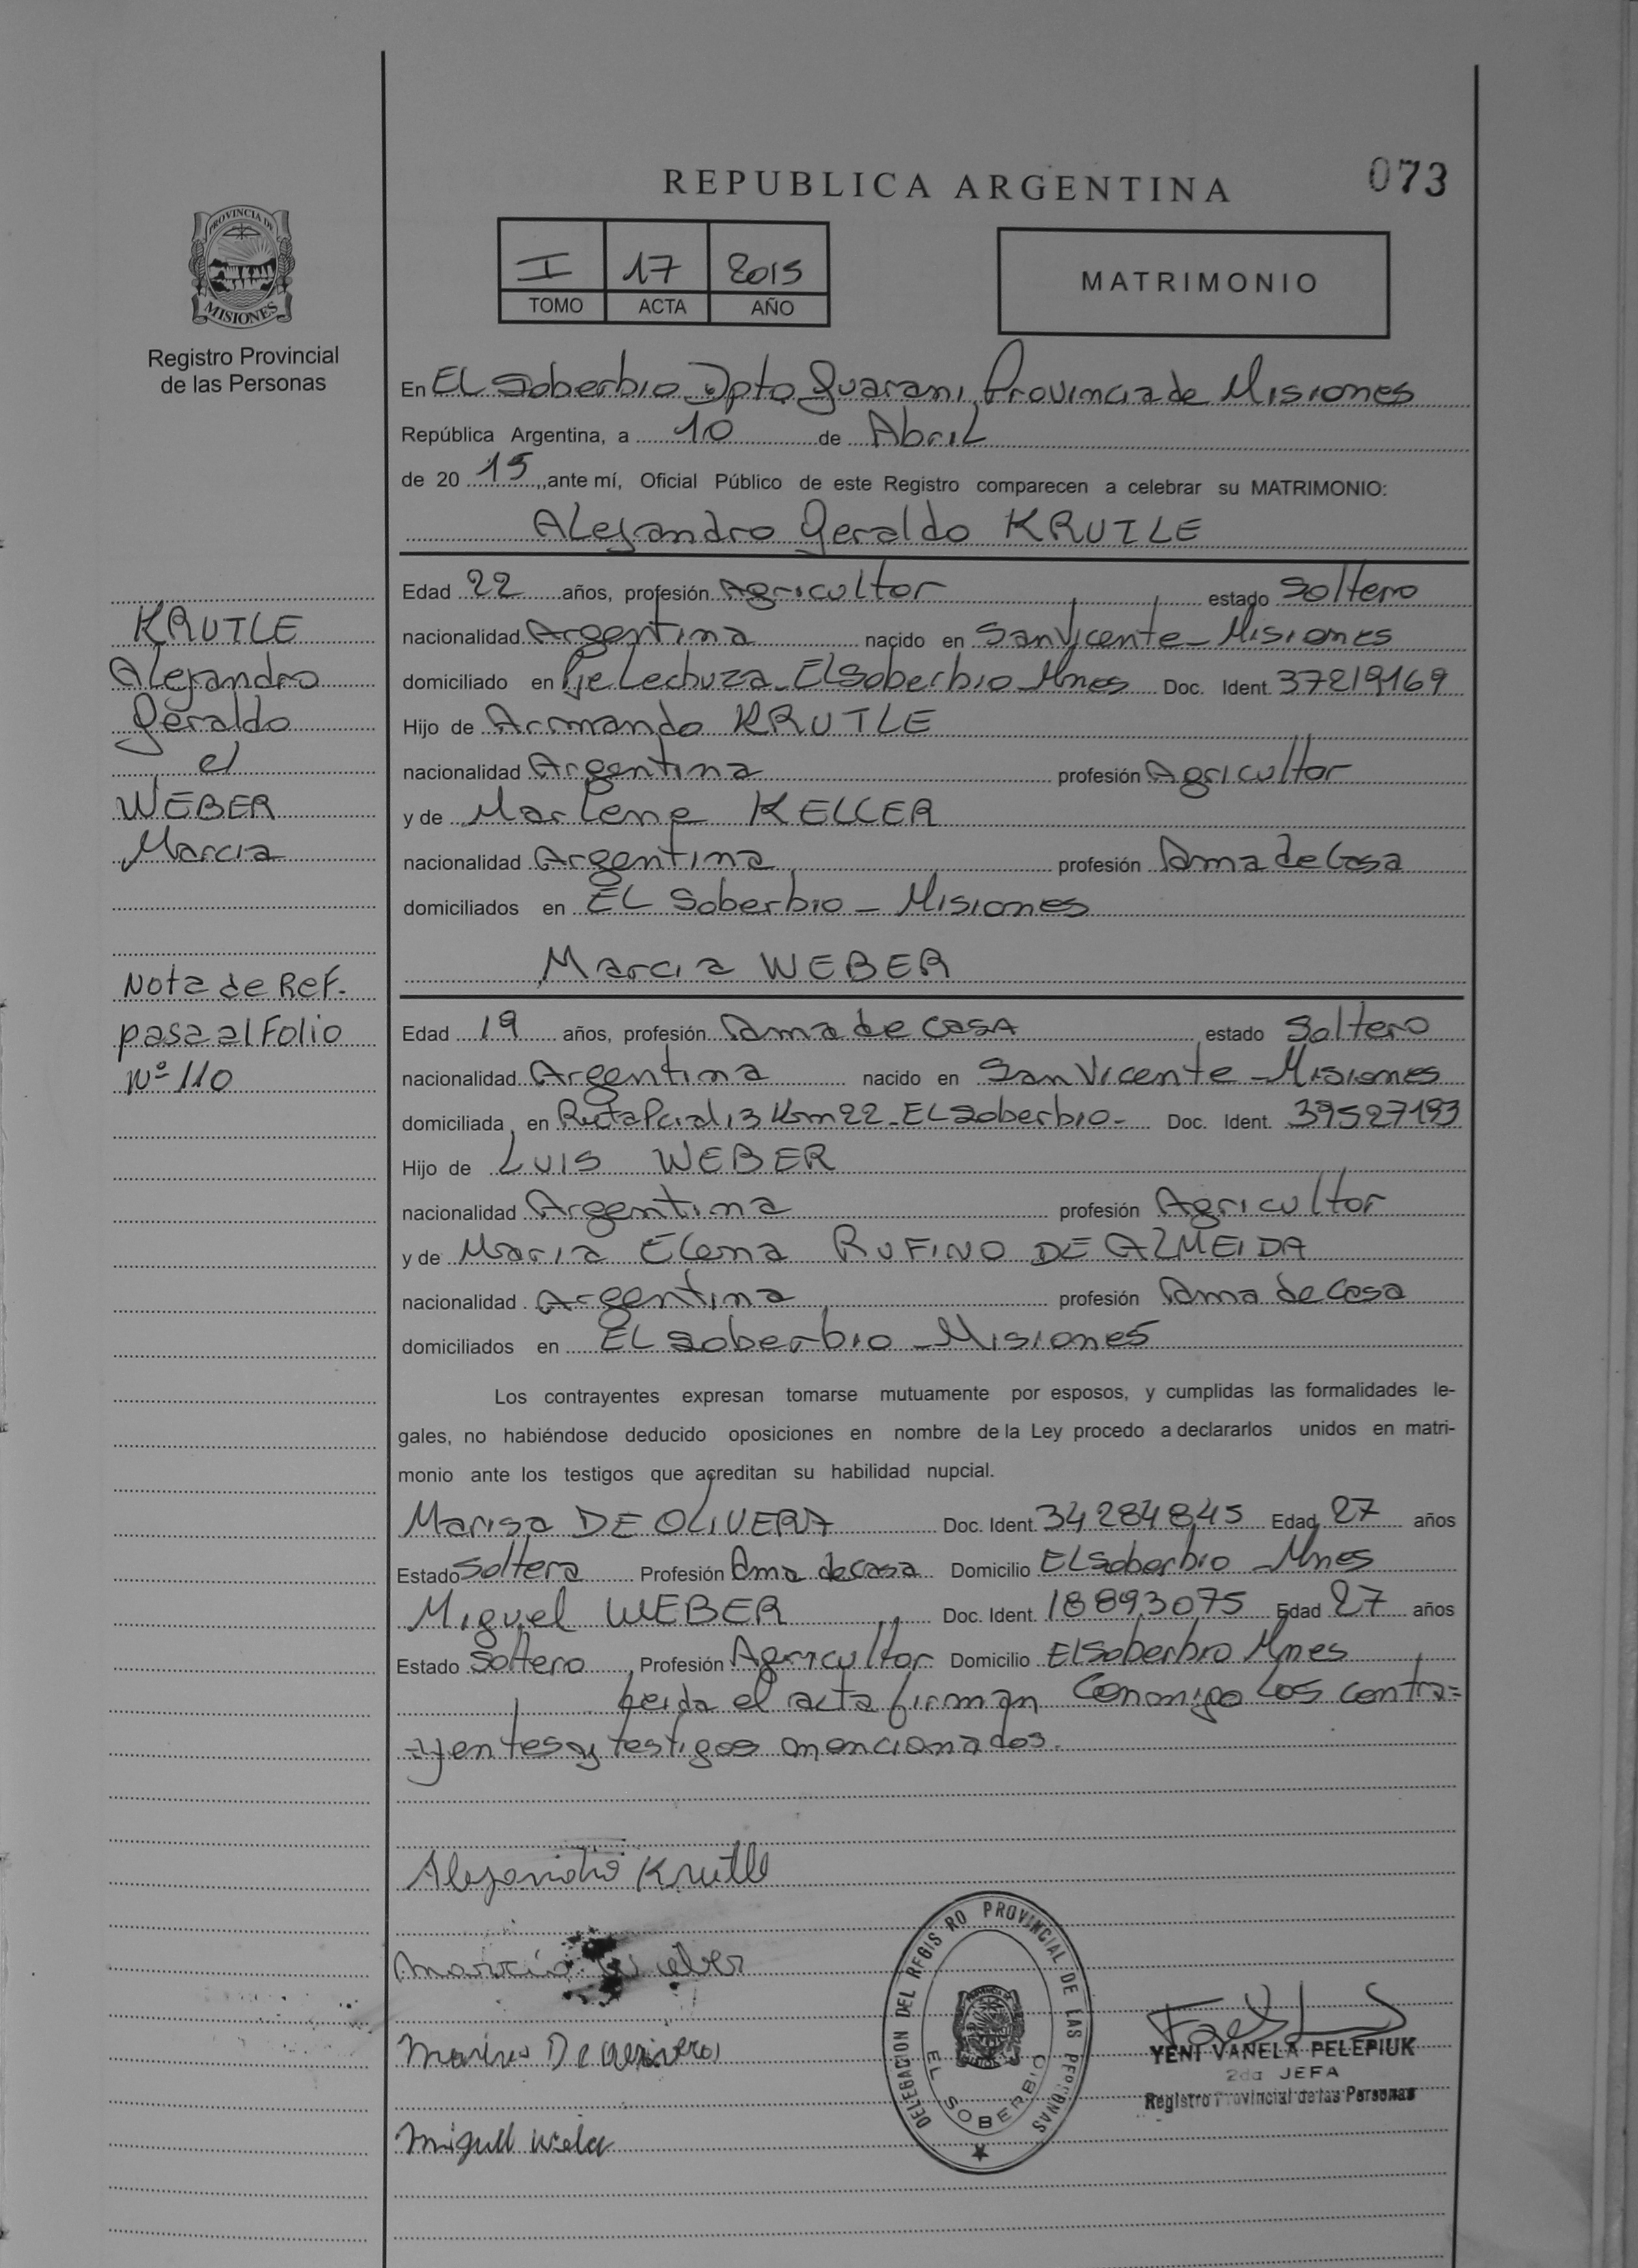 REPUBLICA ARGENTINA
073
PROVINCIA DE
MISIONES
Registro Provincial
de las Personas
I 17 2015
TOMO ACTA AÑO
MATRIMONIO
En EL Soberbio Dpto Guarani, Provincia de Misiones
República Argentina, a 10 de Abril
de 20 15, ante mí, Oficial Público de este Registro comparecen a celebrar su MATRIMONIO:
Alejandro Geraldo KRUTLE
Edad 22 años, profesión Agricultor estado Soltero
nacionalidad Argentina nacido en San Vicente - Misiones
domiciliado en Pje Lechuza - El Soberbio - Mnes Doc. Ident. 37219169
Hijo de Armando KRUTLE
nacionalidad Argentina profesión Agricultor
y de Marlene KELLER
nacionalidad Argentina profesión Ama de Casa
domiciliados en EL Soberbio - Misiones
Marcia WEBER
Edad 19 años, profesión Ama de CASA estado Soltero
nacionalidad Argentina nacido en San Vicente - Misiones
domiciliada en Ruta Pcial 13 Km 22 - EL Soberbio - Doc. Ident. 39527193
Hijo de LUIS WEBER
nacionalidad Argentina profesión Agricultor
y de Maria Elena RUFINO DE ALMEIDA
nacionalidad Argentina profesión Ama de Casa
domiciliados en EL Soberbio - Misiones
Los contrayentes expresan tomarse mutuamente por esposos, y cumplidas las formalidades le-
gales, no habiéndose deducido oposiciones en nombre de la Ley procedo a declararlos unidos en matri-
monio ante los testigos que acreditan su habilidad nupcial.
Marisa DE OLIVERA Doc. Ident. 34284845 Edad 27 años
Estado Soltera Profesión Ama de casa Domicilio El Soberbio - Mnes
Miguel WEBER Doc. Ident. 18893075 Edad 27 años
Estado Soltero Profesión Agricultor Domicilio El Soberbio Mnes
Leida el acta firman Conmigo Los contra=
=yentes y testigos mencionados.
KRUTLE
Alejandro
Geraldo
c/
WEBER
Marcia
Nota de Ref.
pasa al Folio
Nº 110
Alejandro Krutle
Marcia Weber
DELEGACION DEL REGISTRO PROVINCIAL DE LAS PERSONAS
EL SOBERBIO
YENI VANELA PELEPIUK
2da JEFA
Registro Provincial de las Personas